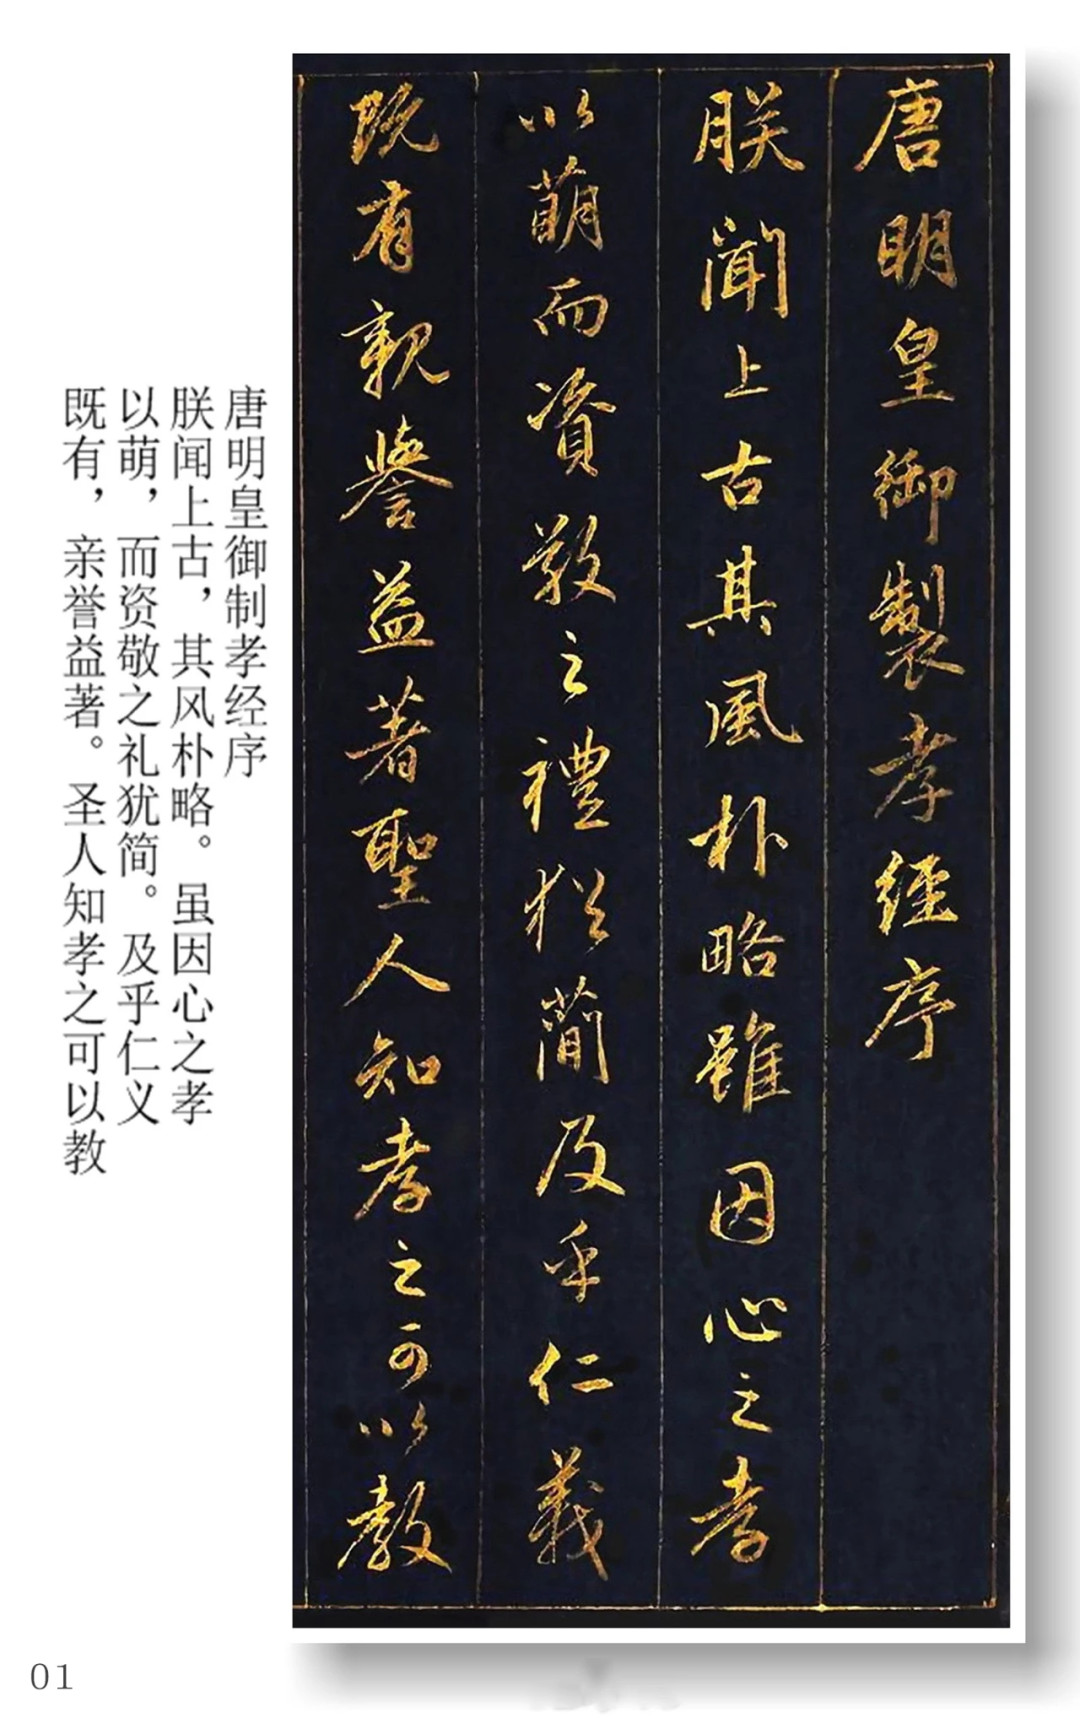 唐明皇御製孝經序
朕聞上古其風朴略雖因心之孝
以萌而資敬之禮猶簡及乎仁義
既有親譽益著聖人知孝之可以教
唐明皇御制孝经序
朕闻上古，其风朴略。虽因心之孝
以萌，而资敬之礼犹简。及乎仁义
既有，亲誉益著。圣人知孝之可以教
01